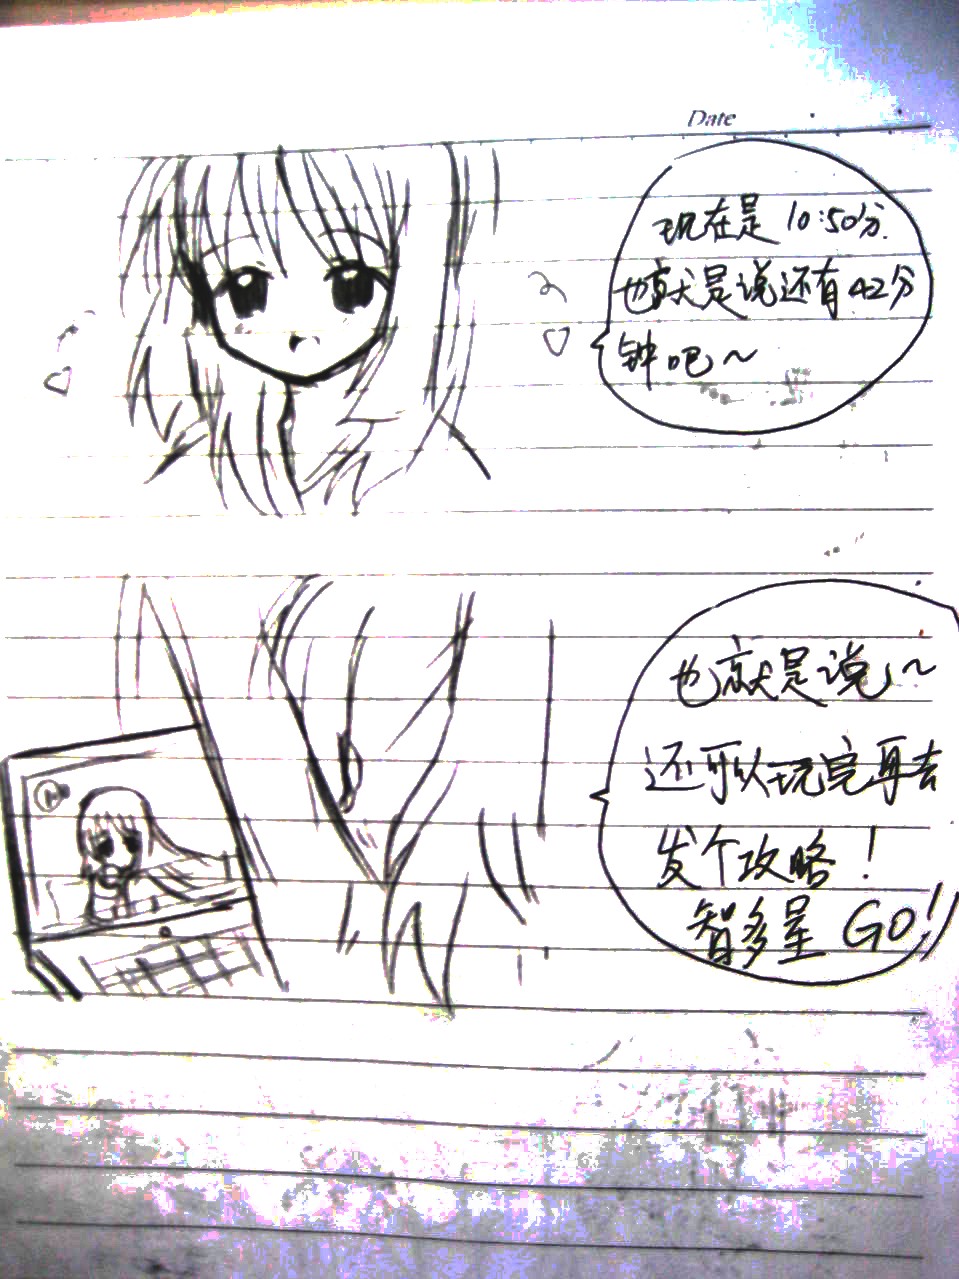 Date
现在是 10:50分.
也就是说还有42分
钟吧~
也就是说~
还可以玩完再去
发个攻略!
智多星 GO!!